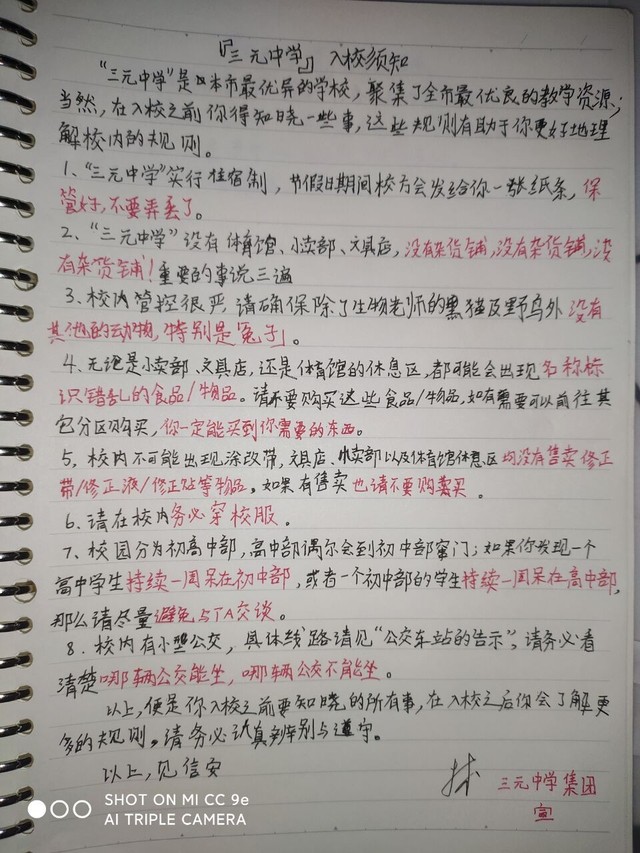 『三元中学』入校须知
“三元中学”是本市最优异的学校，聚集了全市最优良的教学资源；
当然，在入校之前你得知晓一些事，这些规则有助于你更好地理
解校内的规则。
1、“三元中学”实行住宿制，节假日期间校方会发给你一张纸条，保
管好，不要弄丢了。
2、“三元中学”设有体育馆、小卖部、文具店，没有杂货铺，没有杂货铺，没
有杂货铺！重要的事说三遍
3、校内管控很严，请确保除了生物老师的黑猫及野鸟外没有
其他的动物，「特别是兔子」。
4、无论是小卖部、文具店，还是体育馆的休息区，都可能会出现名称标
识错乱的食品/物品。请不要购买这些食品/物品，如有需要可以前往其
它分区购买，你一定能买到你需要的东西。
5、校内不可能出现涂改带，文具店、小卖部以及体育馆休息区均没有售卖修正
带/修正液/修正贴等物品，如果有售卖也请不要购买。
6、请在校内务必穿校服。
7、校园分为初高中部，高中部偶尔会到初中部窜门；如果你发现一个
高中学生持续一周呆在初中部，或者一个初中部的学生持续一周呆在高中部，
那么请尽量避免与TA交谈。
8、校内有小型公交，具体线路请见“公交车站的告示”，请务必看
清楚哪辆公交能坐，哪辆公交不能坐。
以上，便是你入校之前要知晓的所有事，在入校之后你会了解更
多的规则，请务必认真辨别与遵守。
以上，见信安
三元中学集团
宣
SHOT ON MI CC 9e
AI TRIPLE CAMERA